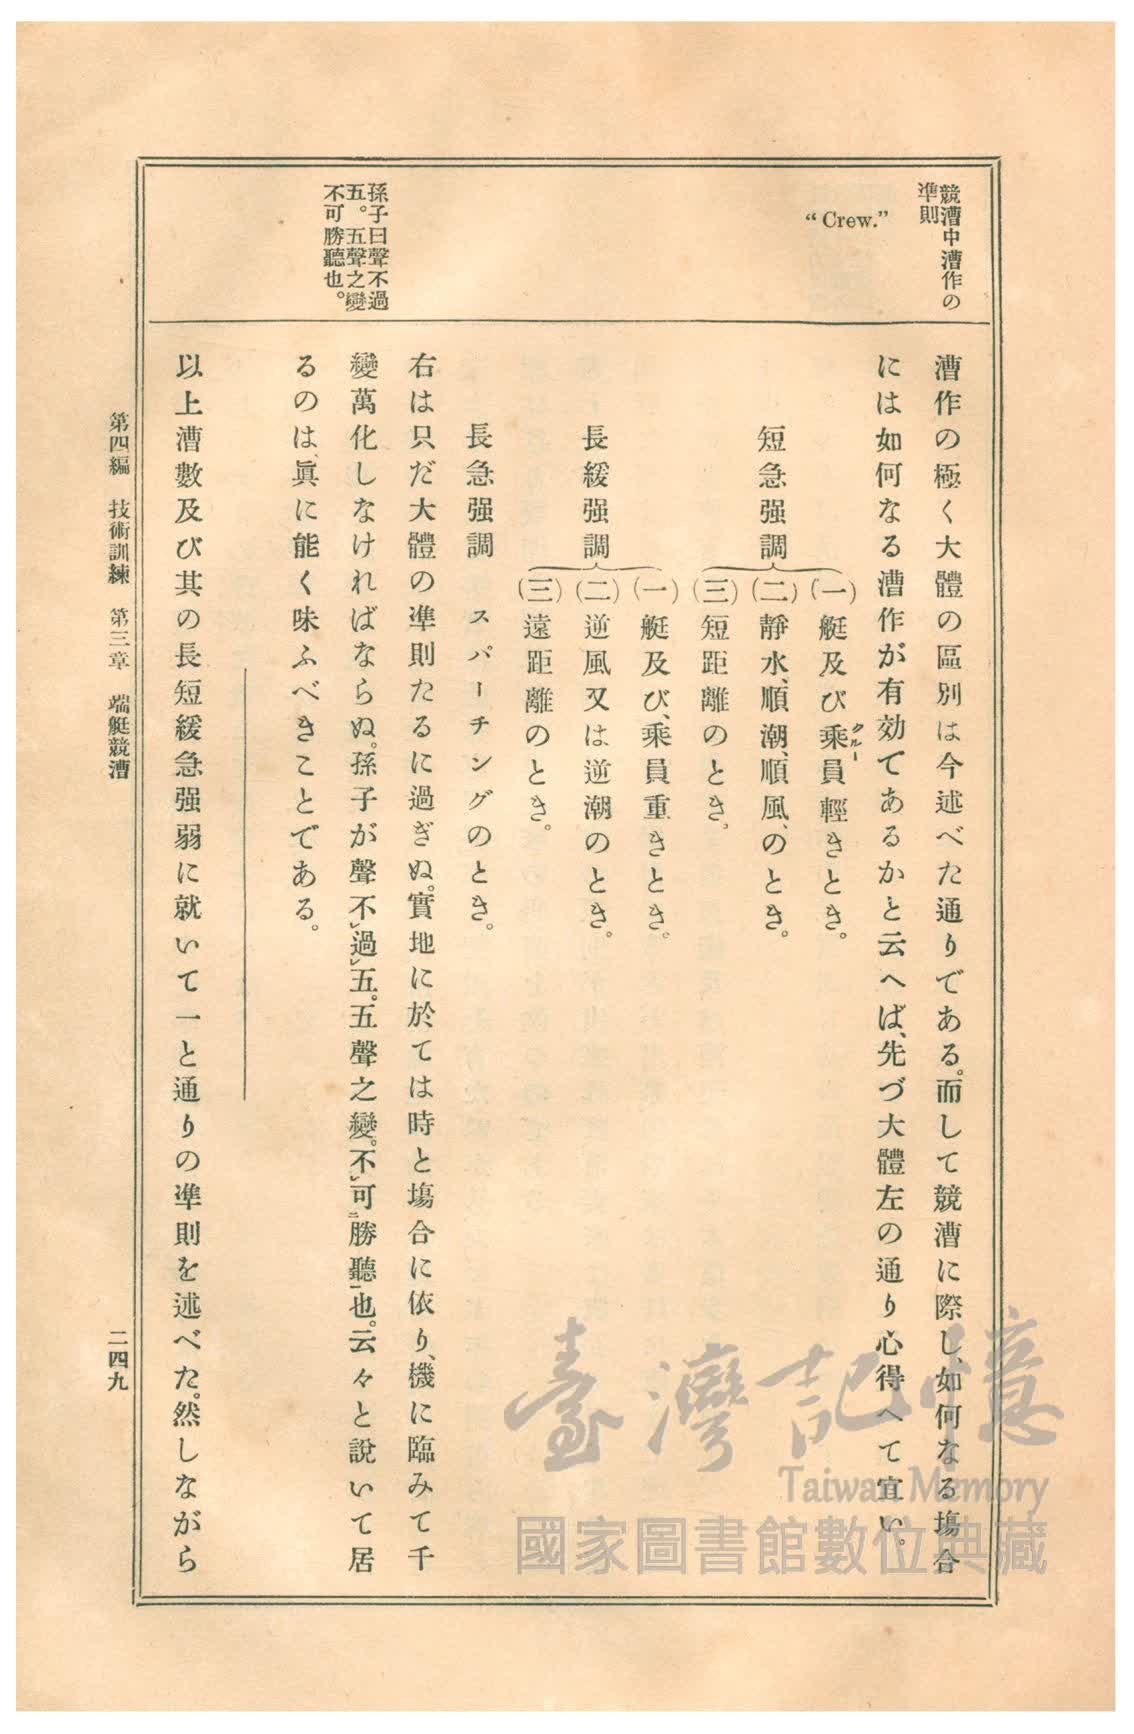 競漕中漕作の
準則
“Crew.”
孫子曰聲不過
五。五聲之變
不可勝聽也。
漕作の極く大體の區別は今述べた通りである。而して競漕に際し、如何なる塲合
には如何なる漕作が有効てあるかと云へば、先づ大體左の通り心得へて宜い。
短急强調
(一)艇及び乘員輕きとき。
クルー
(二)靜水、順潮、順風、のとき。
(三)短距離のとき。
長緩强調
(一)艇及び、乘員重きとき。
(二)逆風又は逆潮のとき。
(三)遠距離のとき。
長急强調 スパーチングのとき。
右は只だ大體の準則たるに過ぎぬ。實地に於ては時と塲合に依り、機に臨みて千
變萬化しなければならぬ。孫子が聲不レ過レ五。五聲之變。不レ可二勝聽一也。云々と說いて居
るのは、眞に能く味ふべきことである。
以上漕數及び其の長短緩急强弱に就いて一と通りの準則を述べた。然しながら
第四編 技術訓練 第三章 端艇競漕
二四九
臺灣記憶
Taiwan Memory
國家圖書館數位典藏